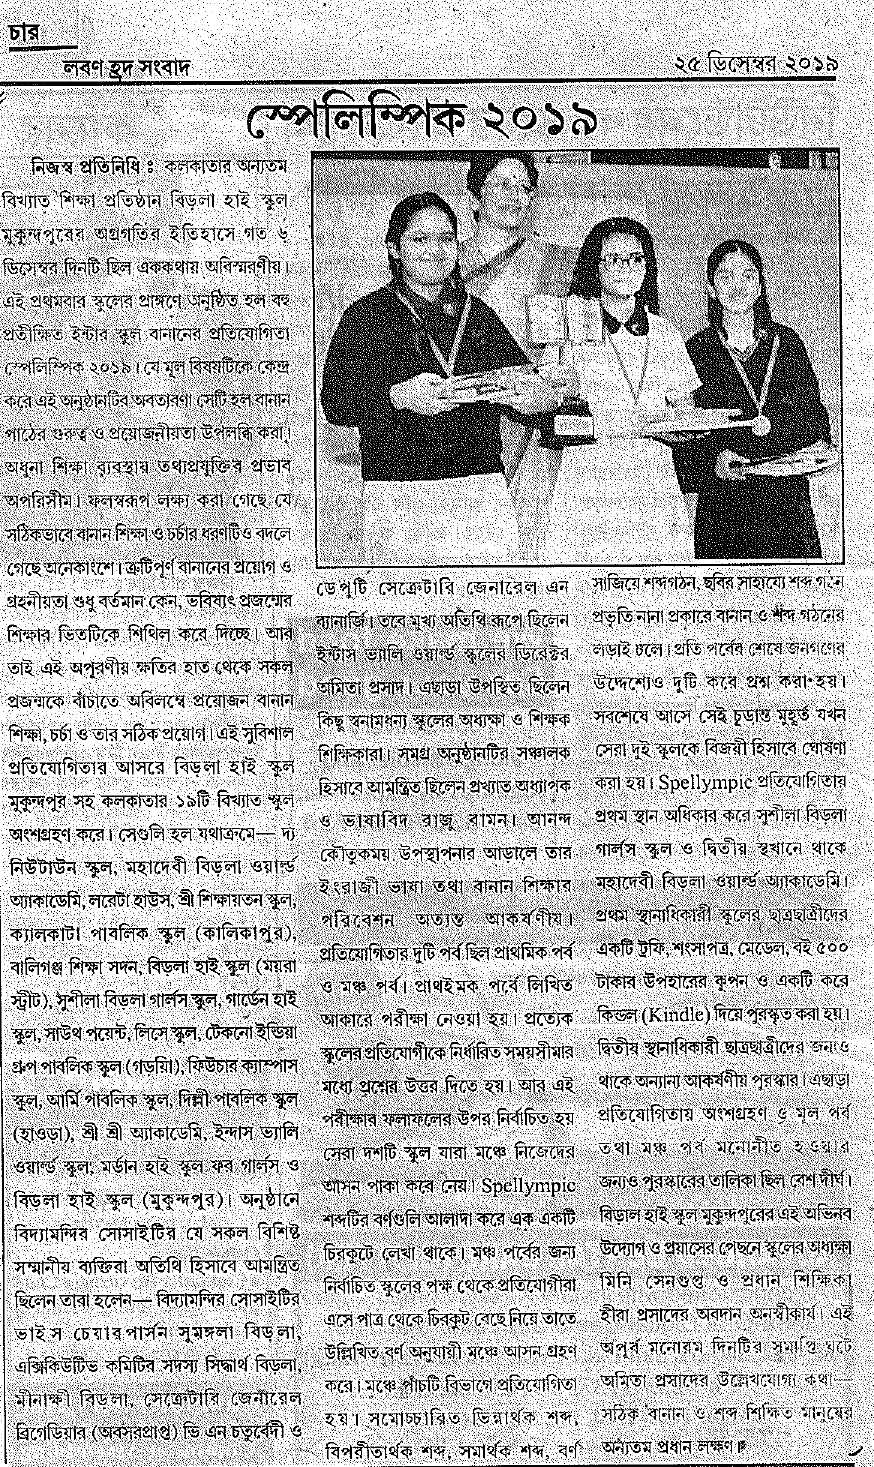 চার
লবণ হ্রদ সংবাদ
২৫ ডিসেম্বর ২০১৯
স্পেলিম্পিক ২০১৯
নিজস্ব প্রতিনিধি ঃ কলকাতার অন্যতম
বিখ্যাত শিক্ষা প্রতিষ্ঠান বিড়লা হাই স্কুল
মুকুন্দপুরের অগ্রগতির ইতিহাসে গত ৬
ডিসেম্বর দিনটি ছিল এককথায় অবিস্মরণীয়।
এই প্রথমবার স্কুলের প্রাঙ্গণে অনুষ্ঠিত হল বহু
প্রতীক্ষিত ইন্টার স্কুল বানানের প্রতিযোগিতা
স্পেলিম্পিক ২০১৯। যে মূল বিষয়টিকে কেন্দ্র
করে এই অনুষ্ঠানটির অবতারণা সেটি হল বানান
পাঠের গুরুত্ব ও প্রয়োজনীয়তা উপলব্ধি করা।
অধুনা শিক্ষা ব্যবস্থায় তথ্যপ্রযুক্তির প্রভাব
অপরিসীম। ফলস্বরূপ লক্ষ্য করা গেছে যে
সঠিকভাবে বানান শিক্ষা ও চর্চার ধরণটিও বদলে
গেছে অনেকাংশে। ত্রুটিপূর্ণ বানানের প্রয়োগ ও
গ্রহনীয়তা শুধু বর্তমান কেন, ভবিষ্যৎ প্রজন্মের
শিক্ষার ভিতটিকে শিথিল করে দিচ্ছে। আর
তাই এই অপূরণীয় ক্ষতির হাত থেকে সকল
প্রজন্মকে বাঁচাতে অবিলম্বে প্রয়োজন বানান
শিক্ষা, চর্চা ও তার সঠিক প্রয়োগ। এই সুবিশাল
প্রতিযোগিতার আসরে বিড়লা হাই স্কুল
মুকুন্দপুর সহ কলকাতার ১৯টি বিখ্যাত স্কুল
অংশগ্রহণ করে। সেগুলি হল যথাক্রমে— দ্য
নিউটাউন স্কুল, মহাদেবী বিড়লা ওয়ার্ল্ড
অ্যাকাডেমি, লরেটা হাউস, শ্রী শিক্ষায়তন স্কুল,
ক্যালকাটা পাবলিক স্কুল (কালিকাপুর),
বালিগঞ্জ শিক্ষা সদন, বিড়লা হাই স্কুল (ময়রা
স্ট্রীট), সুশীলা বিড়লা গার্লস স্কুল, গার্ডেন হাই
স্কুল, সাউথ পয়েন্ট, লিসে স্কুল, টেকনো ইন্ডিয়া
গ্রুপ পাবলিক স্কুল (গড়িয়া), ফিউচার ক্যাম্পাস
স্কুল, আর্মি পাবলিক স্কুল, দিল্লী পাবলিক স্কুল
(হাওড়া), শ্রী শ্রী অ্যাকাডেমি, ইন্দাস ভ্যালি
ওয়ার্ল্ড স্কুল, মর্ডান হাই স্কুল ফর গার্লস ও
বিড়লা হাই স্কুল (মুকুন্দপুর)। অনুষ্ঠানে
বিদ্যামন্দির সোসাইটির যে সকল বিশিষ্ট
সম্মানীয় ব্যক্তিরা অতিথি হিসাবে আমন্ত্রিত
ছিলেন তারা হলেন— বিদ্যামন্দির সোসাইটির
ভাইস চেয়ারপার্সন সুমঙ্গলা বিড়লা,
এক্সিকিউটিভ কমিটির সদস্য সিদ্ধার্থ বিড়লা,
মীনাক্ষী বিড়লা, সেক্রেটারি জেনারেল
ব্রিগেডিয়ার (অবসরপ্রাপ্ত) ভি এন চতুর্বেদী ও
ডেপুটি সেক্রেটারি জেনারেল এন
ব্যানার্জি। তবে মুখ্য অতিথি রূপে ছিলেন
ইন্টাস ভ্যালি ওয়ার্ল্ড স্কুলের ডিরেক্টর
অমিতা প্রসাদ। এছাড়া উপস্থিত ছিলেন
কিছু স্বনামধন্য স্কুলের অধ্যক্ষা ও শিক্ষক
শিক্ষিকারা। সমগ্র অনুষ্ঠানটির সঞ্চালক
হিসাবে আমন্ত্রিত ছিলেন প্রখ্যাত অধ্যাপক
ও ভাষাবিদ রাজু রামন। আনন্দ
কৌতুকময় উপস্থাপনার আড়ালে তার
ইংরাজী ভাষা তথা বানান শিক্ষার
পরিবেশন অত্যন্ত আকর্ষণীয়।
প্রতিযোগিতার দুটি পর্ব ছিল প্রাথমিক পর্ব
ও মঞ্চ পর্ব। প্রাথইমক পর্বে লিখিত
আকারে পরীক্ষা নেওয়া হয়। প্রত্যেক
স্কুলের প্রতিযোগীকে নির্ধারিত সময়সীমার
মধ্যে প্রশ্নের উত্তর দিতে হয়। আর এই
পরীক্ষার ফলাফলের উপর নির্বাচিত হয়
সেরা দশটি স্কুল যারা মঞ্চে নিজেদের
আসন পাকা করে নেয়। Spellympic
শব্দটির বর্ণগুলি আলাদা করে এক একটি
চিরকুটে লেখা থাকে। মঞ্চ পর্বের জন্য
নির্বাচিত স্কুলের পক্ষ থেকে প্রতিযোগীরা
এসে পাত্র থেকে চিরকুট বেছে নিয়ে তাতে
উল্লিখিত বর্ণ অনুযায়ী মঞ্চে আসন গ্রহণ
করে। মঞ্চে পাঁচটি বিভাগে প্রতিযোগিতা
হয়। সমোচ্চারিত ভিন্নার্থক শব্দ,
বিপরীতার্থক শব্দ, সমার্থক শব্দ, বর্ণ
সাজিয়ে শব্দগঠন, ছবির সাহায্যে শব্দ গঠন
প্রভৃতি নানা প্রকারে বানান ও শব্দ গঠনের
লড়াই চলে। প্রতি পর্বের শেষে জনগণের
উদ্দেশ্যেও দুটি করে প্রশ্ন করা হয়।
সবশেষে আসে সেই চূড়ান্ত মুহূর্ত যখন
সেরা দুই স্কুলকে বিজয়ী হিসাবে ঘোষণা
করা হয়। Spellympic প্রতিযোগিতায়
প্রথম স্থান অধিকার করে সুশীলা বিড়লা
গার্লস স্কুল ও দ্বিতীয় স্থখানে থাকে
মহাদেবী বিড়লা ওয়ার্ল্ড অ্যাকাডেমি।
প্রথম স্থানাধিকারী স্কুলের ছাত্রছাত্রীদের
একটি ট্রফি, শংসাপত্র, মেডেল, বই ৫০০
টাকার উপহারের কুপন ও একটি করে
কিন্ডল (Kindle) দিয়ে পুরস্কৃত করা হয়।
দ্বিতীয় স্থানাধিকারী ছাত্রছাত্রীদের জন্যও
থাকে অন্যান্য আকর্ষণীয় পুরস্কার। এছাড়া
প্রতিযোগিতায় অংশগ্রহণ ও মূল পর্ব
তথা মঞ্চ পর্ব মনোনীত হওয়ার
জন্যও পুরস্কারের তালিকা ছিল বেশ দীর্ঘ।
বিড়াল হাই স্কুল মুকুন্দপুরের এই অভিনব
উদ্যোগ ও প্রয়াসের পেছনে স্কুলের অধ্যক্ষা
মিনি সেনগুপ্ত ও প্রধান শিক্ষিকা
হীরা প্রসাদের অবদান অনস্বীকার্য। এই
অপূর্ব মনোরম দিনটির সমাপ্তি ঘটে
অমিতা প্রসাদের উল্লেখযোগ্য কথা—
সঠিক বানান ও শব্দ শিক্ষিত মানুষের
অন্যতম প্রধান লক্ষণ।